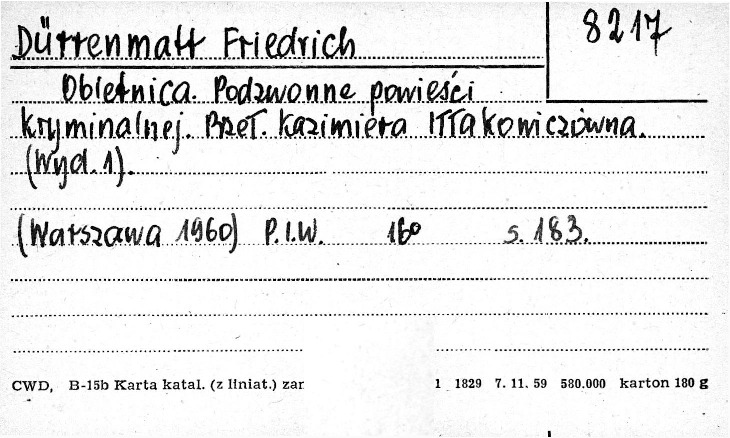 Dürrenmatt Friedrich
8217
Obietnica. Podzwonne powieści
kryminalnej. Przeł. Kazimiera Iłłakowiczówna.
(Wyd. 1).
(Warszawa 1960) P.I.W. 16° s. 183.
CWD, B-15b Karta katal. (z liniat.) zar
1 1829 7. 11. 59 580.000 karton 180 g